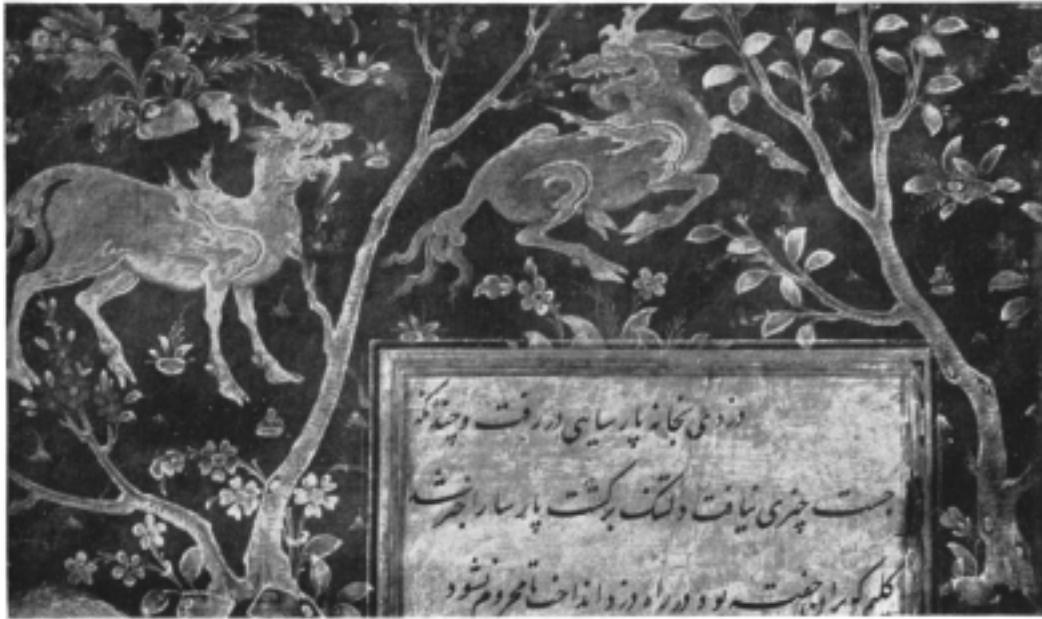 دزدی بخانه پارسایی در رفت و چندانکه
جست چیزی نیافت دلتنک برکشت پارسا را خبر شد
کلیمی که بران خفته بود در راه دزد انداخت تا محروم نشود